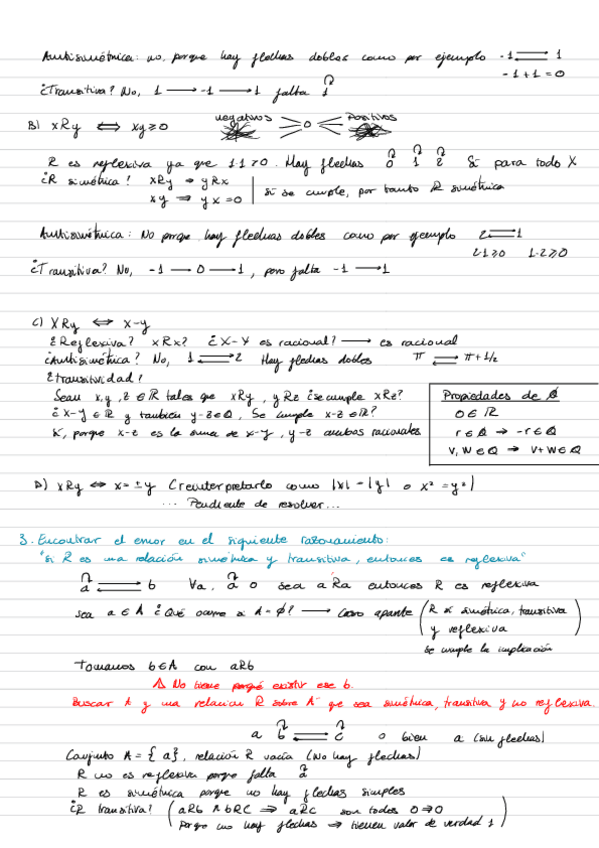 Antisimétrica: no, porque hay flechas dobles como por ejemplo -1 ⇄ 1
-1+1=0
¿Transitiva? No, 1 → -1 → 1 falta 1
B) xRy ⇔ xy≥0 negativos 0 positivos
R es reflexiva ya que 1·1≥0. Hay flechas 0 1 2 Sí para todo X
¿R simétrica? xRy → yRx
xy ⇒ yx=0 | sí se cumple, por tanto R simétrica
Antisimétrica: No porque hay flechas dobles como por ejemplo 2 ⇄ 1
2·1≥0 1·2≥0
¿Transitiva? No, -1 — 0 → 1, pero falta -1 → 1
C) XRy ⇔ x-y
¿Reflexiva? xRx? ¿X-X es racional? → es racional
¿Antisimétrica? No, 1 ⇄ 2 Hay flechas dobles π ⇄ π+1/2
¿transitividad?
Sean x,y,z ∈ R tales que xRy, yRz ¿se cumple xRz?
¿X-Y ∈ R y también y-z∈Q, Se cumple x-z∈R?
Sí, porque x-z es la suma de x-y, y-z ambas racionales
Propiedades de Q
0 ∈ R
r∈Q → -r∈Q
V, W ∈ Q → V+W ∈ Q
D) xRy ⇔ x=±y (reinterpretarlo como |x|=|y| o x²=y²)
... Pendiente de resolver...
3. Encontrar el error en el siguiente razonamiento:
"Si R es una relación simétrica y transitiva, entonces es reflexiva"
a ⇄ b ∀a, a o sea aRa entonces R es reflexiva
sea a∈A ¿Qué ocurre si A=∅? → Caso aparte (R es simétrica, transitiva
y reflexiva)
se cumple la implicación
Tomamos b∈A con aRb
⚠ No tiene porqué existir ese b.
Buscar A y una relación R sobre A que sea simétrica, transitiva y no reflexiva.
a b ⇄ c o bien a (sin flechas)
Conjunto A={a}, relación R vacía (No hay flechas)
R no es reflexiva porque falta a
R es simétrica porque no hay flechas simples
¿R transitiva? (aRb ∧ bRC ⇒ aRC son todos 0⇒0
Porque no hay flechas ⇒ tienen valor de verdad 1)